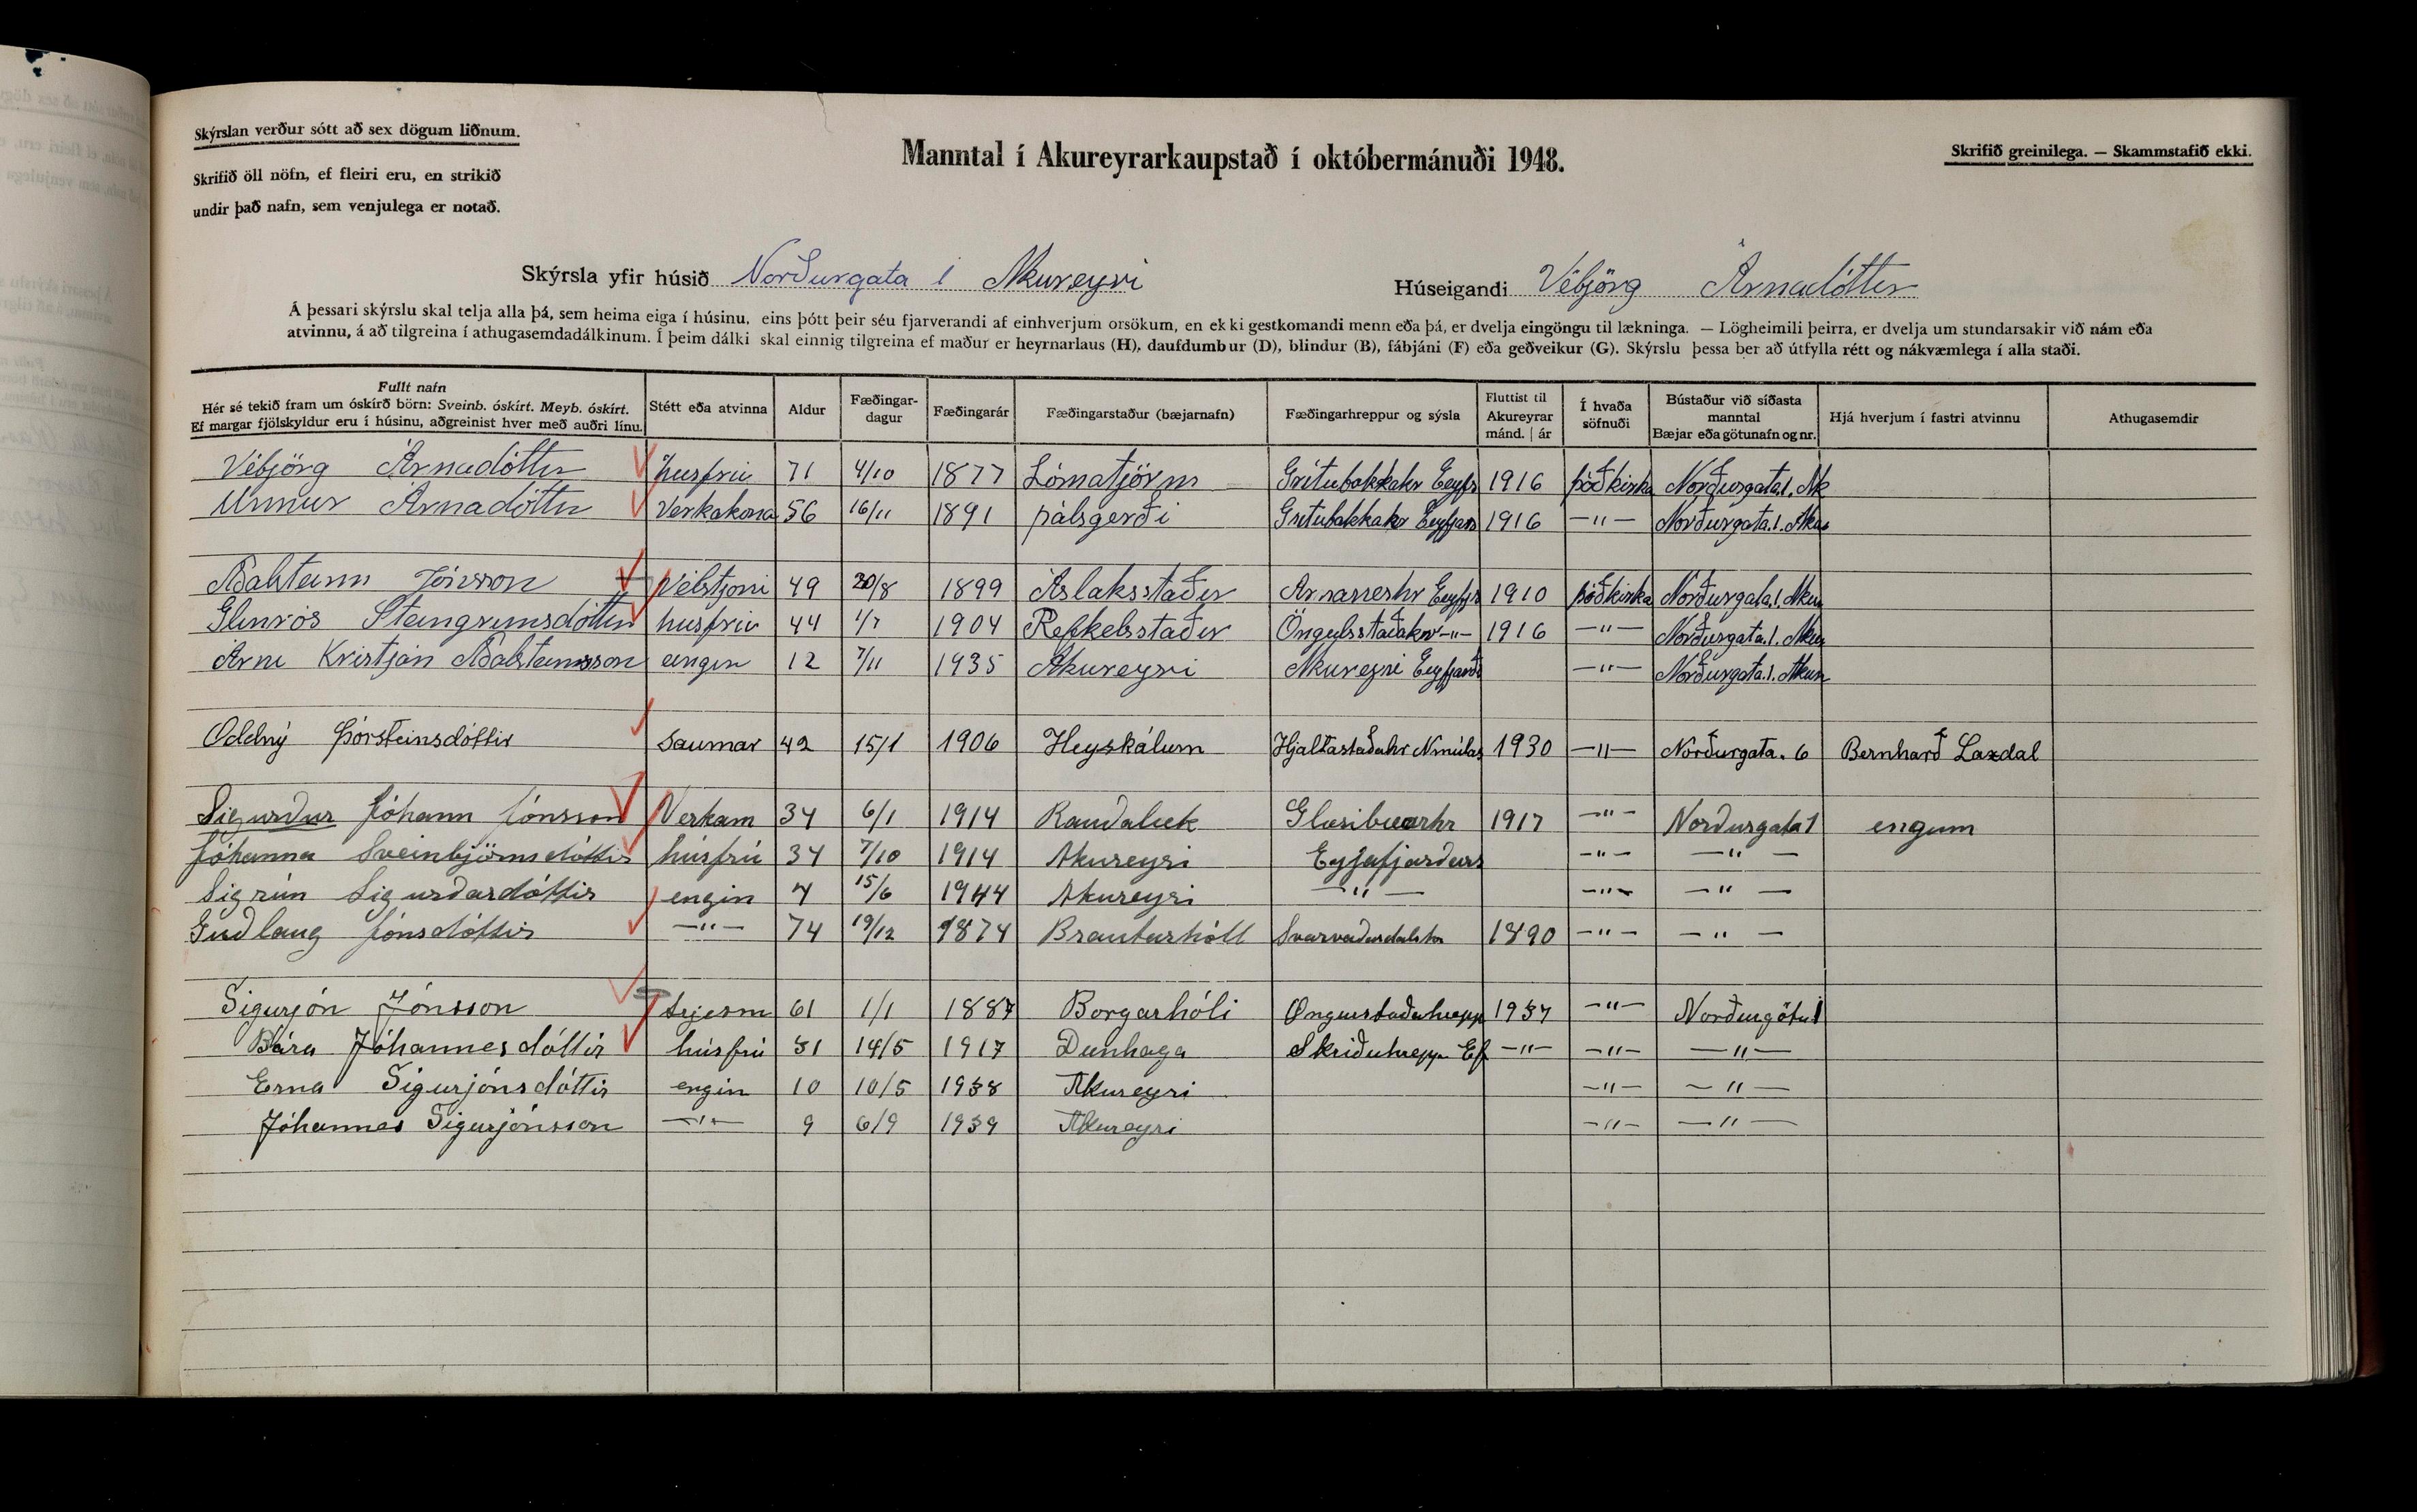 Skýrslan verður sótt að sex dögum liðnum.
Skrifið öll nöfn, ef fleiri eru, en strikið
undir það nafn, sem venjulega er notað.
Manntal í Akureyrarkaupstað í októbermánuði 1948.
Skrifið greinilega. — Skammstafið ekki.
Skýrsla yfir húsið Norðurgata 1 Akureyri
Húseigandi Vébjörg Árnadóttir
Á þessari skýrslu skal telja alla þá, sem heima eiga í húsinu, eins þótt þeir séu fjarverandi af einhverjum orsökum, en ekki gestkomandi menn eða þá, er dvelja eingöngu til lækninga. — Lögheimili þeirra, er dvelja um stundarsakir við nám eða
atvinnu, á að tilgreina í athugasemdadálkinum. Í þeim dálki skal einnig tilgreina ef maður er heyrnarlaus (H), daufdumbur (D), blindur (B), fábjáni (F) eða geðveikur (G). Skýrslu þessa ber að útfylla rétt og nákvæmlega í alla staði.
Fullt nafn
Hér sé tekið fram um óskírð börn: Sveinb. óskírt. Meyb. óskírt.
Ef margar fjölskyldur eru í húsinu, aðgreinist hver með auðri línu.
Stétt eða atvinna
Aldur
Fæðingar-
dagur
Fæðingarár
Fæðingarstaður (bæjarnafn)
Fæðingarhreppur og sýsla
Fluttist til
Akureyrar
mánd. | ár
Í hvaða
söfnuði
Bústaður við síðasta
manntal
Bæjar eða götunafn og nr.
Hjá hverjum í fastri atvinnu
Athugasemdir
Vébjörg Árnadóttir húsfrú 71 4/10 1877 Lómatjörn Grítubakkahr Eeyfr 1916 þóðkirka Norðurgata.1. Ak
Unnur Árnadóttir Verkakona 56 16/11 1891 pálsgerði Grítubakkahr Eeyfjars 1916 —"— Norðurgata.1. Aku
Aðalsteinn Jónsson Vélstjori 49 20/8 1899 Áslaksstaðir Arnarneshr Eeyfjr 1910 þóðkirka Norðurgata.1. Akur
Glerrós Steingrímsdóttir húsfrú 44 1/7 1904 Refkelsstaðir Öngulsstaðahr —"— 1916 —"— Norðurgata.1. Akur
Árni Kristján Aðalsteinsson eingin 12 7/11 1935 Akureyri Akureyri Eeyfjarð —"— Norðurgata.1. Akur
Oddný Þórsteinsdóttir Saumar 42 15/1 1906 Heyskálum Hjaltastaðahr Nmúlas 1930 —"— Norðurgata. 6 Bernharð Laxdal
Sigurður Jóhann Jónsson Verkam 34 6/1 1914 Rauðalæk Glæsibæarhr 1917 —"— Norðurgata 1 engum
Jóhanna Sveinbjörnsdóttir húsfrú 34 7/10 1914 Akureyri Eyjafjarðars —"— —"—
Sigrún Sigurðardóttir engin 4 15/6 1944 Akureyri —"— —"— —"—
Guðlaug Jónsdóttir —"— 74 19/12 1874 Brautarhóll Svarvaðardalshr 1890 —"— —"—
Sigurjón Jónsson 61 1/1 1887 Borgarhóli Ongurstaðahrepp 1937 —"— Norðurgötu 1
Bára Jóhannesdóttir húsfrú 31 14/5 1917 Dunhaga Skriðuhrepp Ef —"— —"— —"—
Erna Sigurjónsdóttir engin 10 10/5 1938 Akureyri —"— —"—
Jóhannes Sigurjónsson —"— 9 6/9 1939 Akureyri —"— —"—